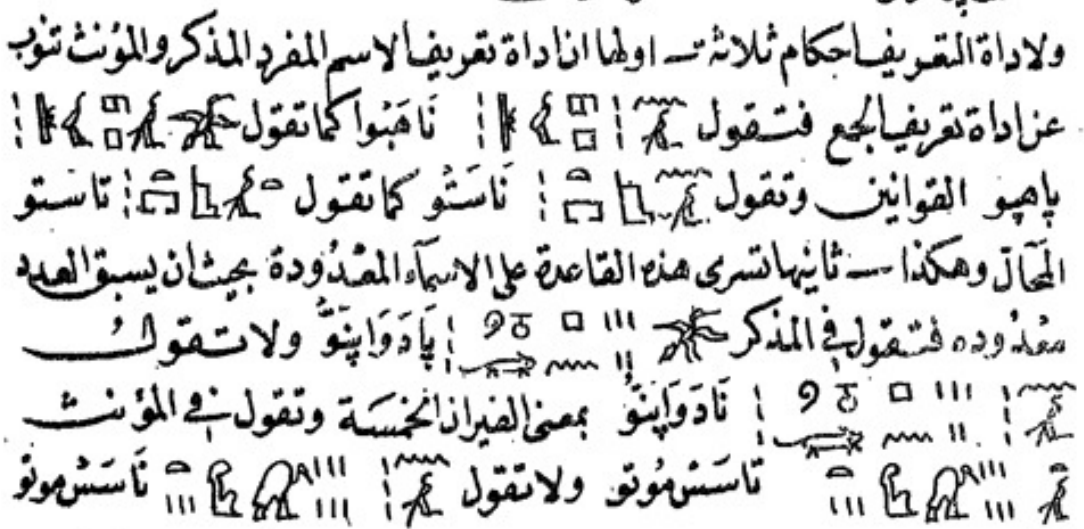 ولاداة التعريف احكام ثلاثة — اولها ان اداة تعريف الاسم المفرد المذكر والمؤنث تنوب
عن اداة تعريف الجمع فتقول نَاهَپُوا كما تقول
پاهپو القوانين وتقول نَاسَتُو كما تقول تاستو
المحآل وهكذا — ثانيها تسرى هذه القاعدة على الاسمآء المعدودة بحيث ان يسبق العدد
معدوده فتقول في المذكر پَادَوَاپِنَوُّ ولا تقول
نَادَوَاپِنَوُّ بمعنى الفيران الخمسة وتقول في المؤنث
تاسَسْمُوتو ولا تقول نَاسَسْموتو